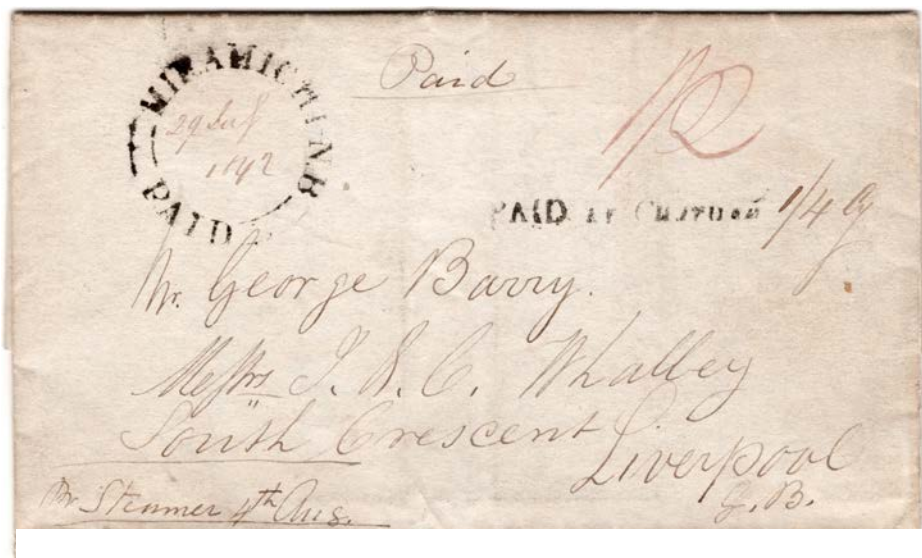 Paid
MIRAMICHI N.B
29 July
1842
PAID
1/2
PAID AT CHATHAM
1/4 Cy
Mr. George Barry.
Messrs J. & C. Whalley
South Crescent
Liverpool
G. B.
Pr Steamer 4th Aug.